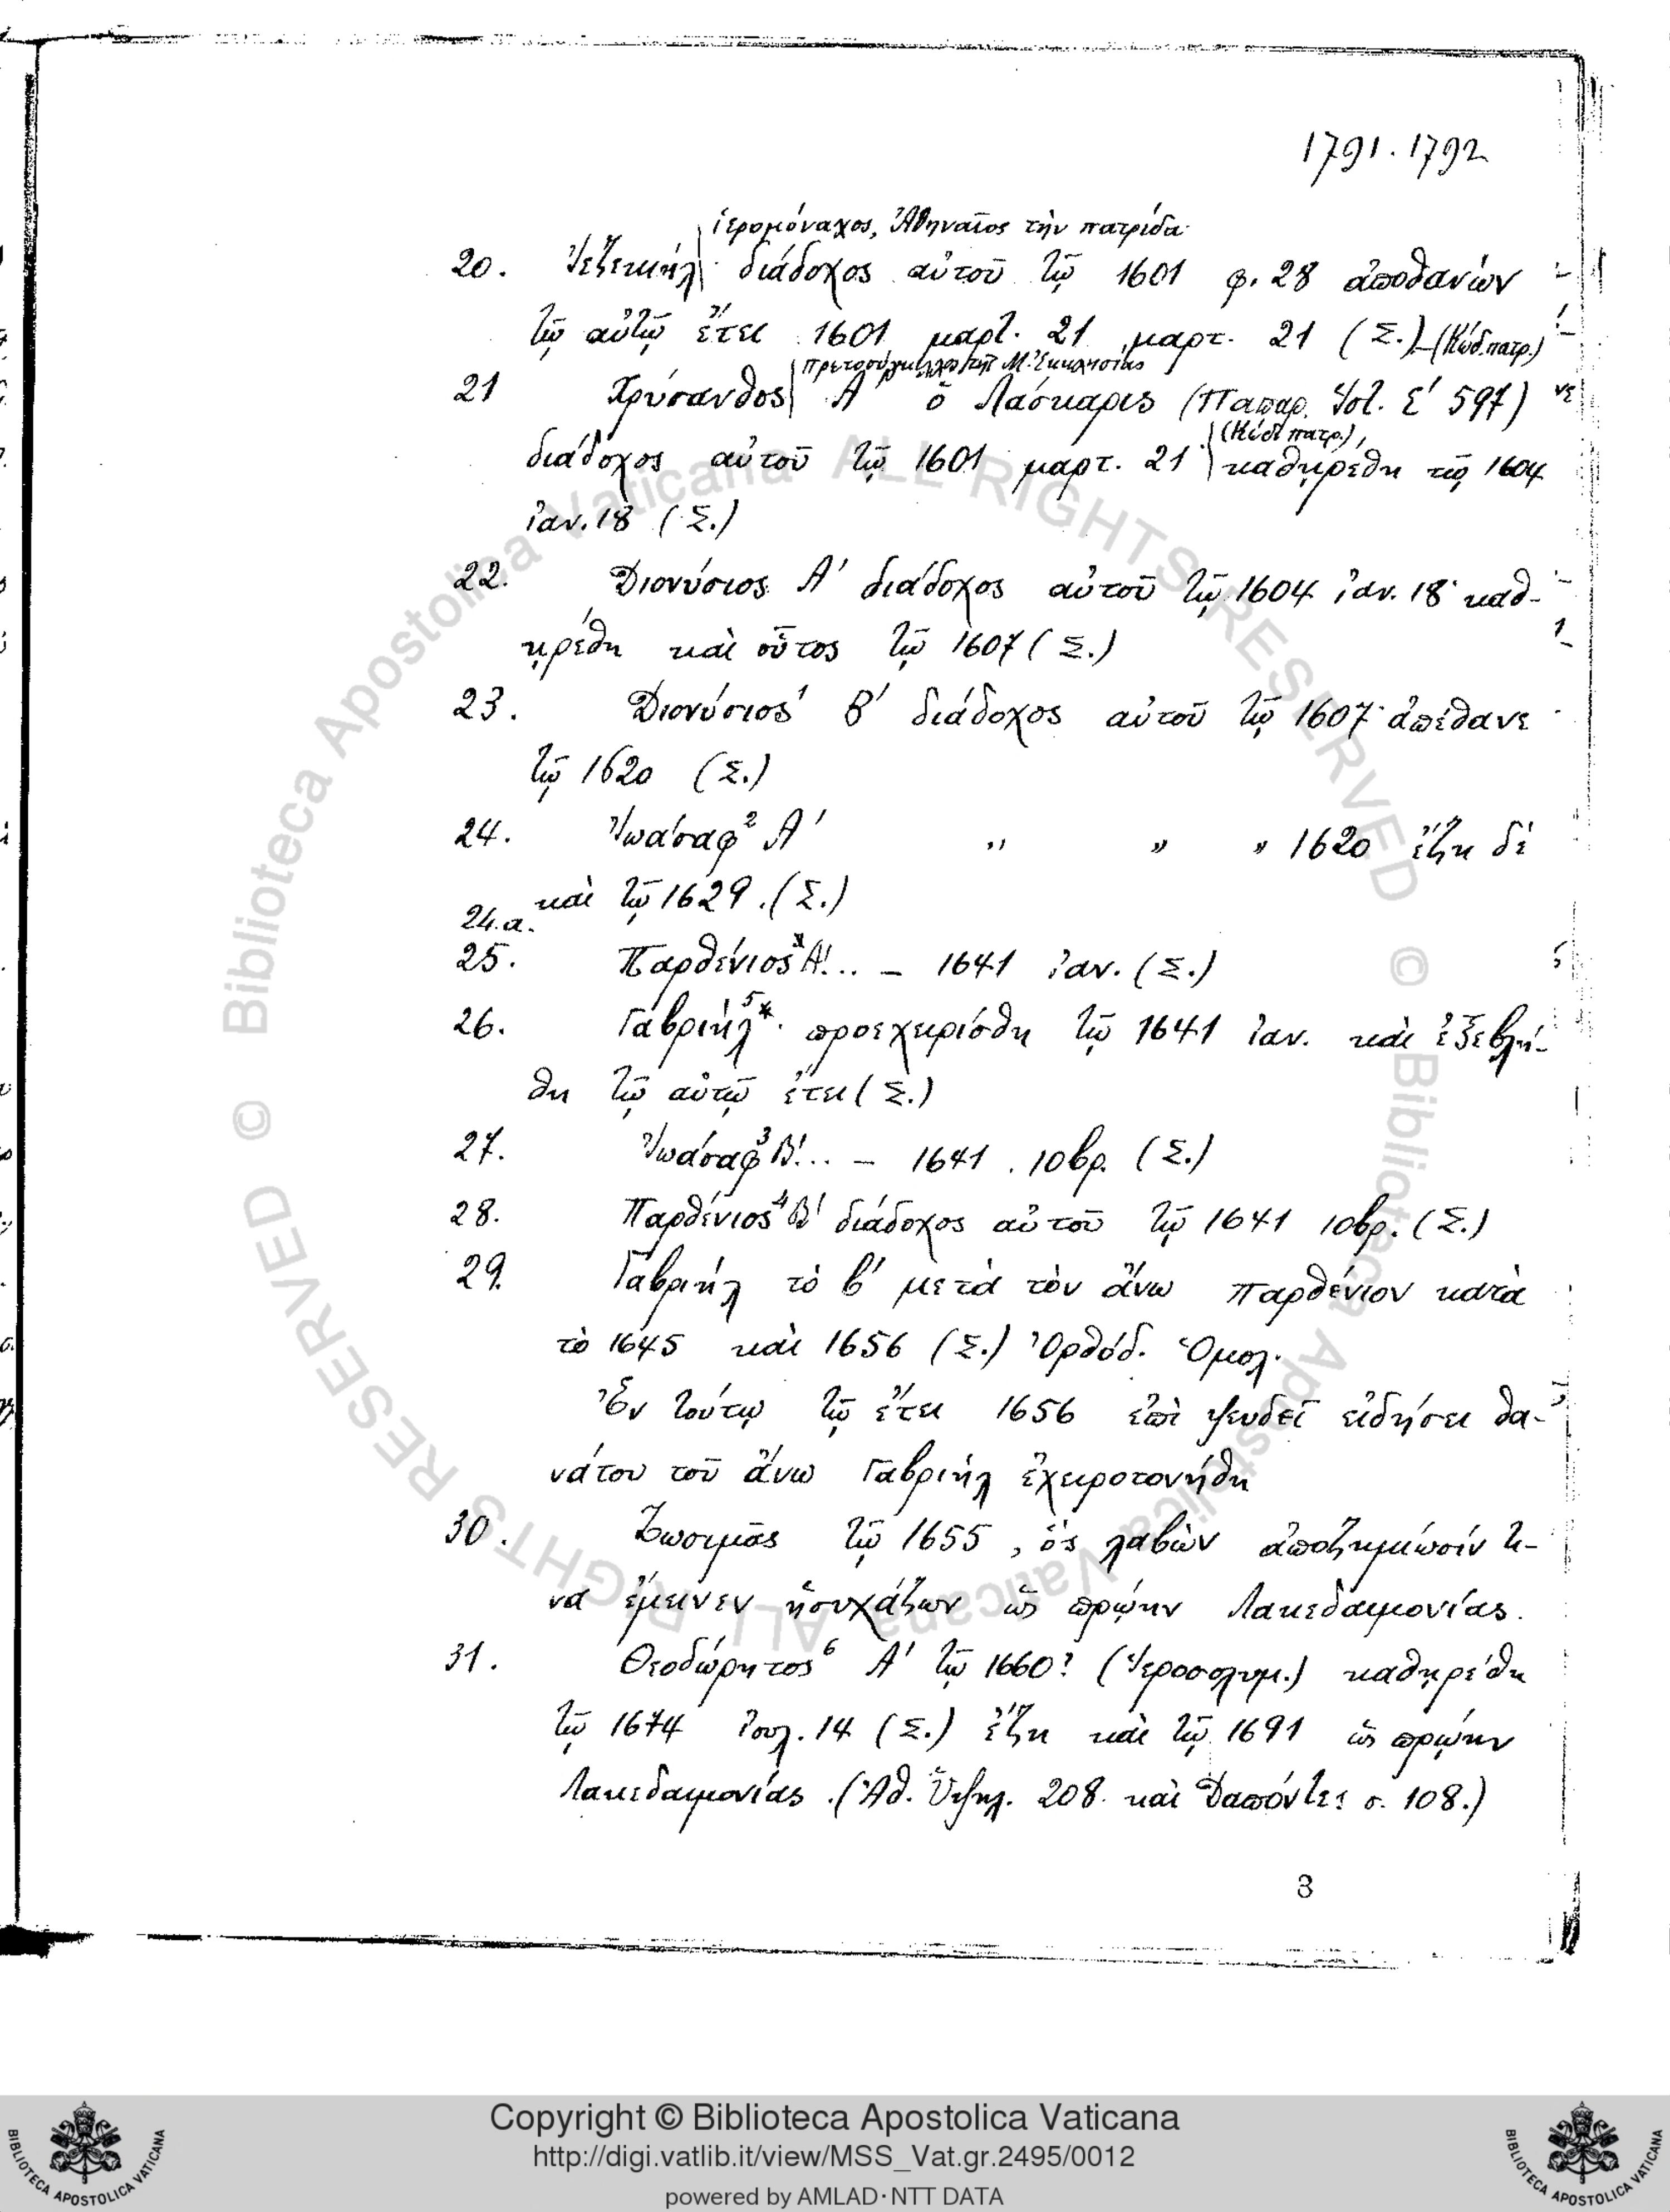 1791. 1792
ἱερομόναχος, Ἀθηναῖος τὴν πατρίδα·
20. Ἰεζεκιήλ διάδοχος αὐτοῦ τῷ 1601 φ. 28 ἀποθανών
τῷ αὐτῷ ἔτει 1601 μαρτ. 21 μαρτ. 21 (Σ.) – (Κώδ. πατρ.)
πρωτοσύγκελλος τῆς Μ. Ἐκκλησίας
21 Χρύσανθος Α' ὁ Λάσκαρις (Παπαρ. Ἱστ. Ε' 597)
(Κώδ πατρ.),
διάδοχος αὐτοῦ τῷ 1601 μαρτ. 21 καθῃρέθη τῷ 1604
ἰαν. 18 (Σ.)
22. Διονύσιος Α' διάδοχος αὐτοῦ τῷ 1604 ἰαν. 18· καθ-
ῃρέθη καὶ οὗτος τῷ 1607 (Σ.)
23. Διονύσιος¹ Β' διάδοχος αὐτοῦ τῷ 1607· ἀπέθανε
τῷ 1620 (Σ.)
24. Ἰωάσαφ² Α' " " " 1620 ἔζη δὲ
καὶ τῷ 1629. (Σ.)
24.α.
25. Παρθένιος* Α'... – 1641 ἰαν. (Σ.)
26. Γαβριήλ⁵*· προεχειρίσθη τῷ 1641 ἰαν. καὶ ἐξεβλή-
θη τῷ αὐτῷ ἔτει (Σ.)
27. Ἰωάσαφ³ Β'... – 1641. 10βρ. (Σ.)
28. Παρθένιος⁴ Β' διάδοχος αὐτοῦ τῷ 1641 10βρ. (Σ.)
29. Γαβριήλ τὸ β' μετὰ τὸν ἄνω Παρθένιον κατὰ
τὸ 1645 καὶ 1656 (Σ.) Ὀρθόδ. Ὁμολ.
Ἐν τούτῳ τῷ ἔτει 1656 ἐπὶ ψευδεῖ εἰδήσει θα-
νάτου τοῦ ἄνω Γαβριήλ ἐχειροτονήθη
30. Ζωσιμᾶς τῷ 1655, ὃς λαβὼν ἀποζημίωσίν τι-
να ἔμεινεν ἡσυχάζων ὡς πρῴην Λακεδαιμονίας.
31. Θεοδώρητος⁶ Α' τῷ 1660? (Ἱεροσολυμ.) καθῃρέθη
τῷ 1674 Ἰουλ. 14 (Σ.) ἔζη καὶ τῷ 1691 ὡς πρῴην
Λακεδαιμονίας. (Ἀθ. Ὑψηλ. 208. καὶ Δαπόντες σ. 108.)
3
© Biblioteca Apostolica Vaticana ALL RIGHTS RESERVED
© Biblioteca Apostolica Vaticana ALL RIGHTS RESERVED
BIBLIOTECA APOSTOLICA VATICANA
Copyright © Biblioteca Apostolica Vaticana
http://digi.vatlib.it/view/MSS_Vat.gr.2495/0012
powered by AMLAD·NTT DATA
BIBLIOTECA APOSTOLICA VATICANA